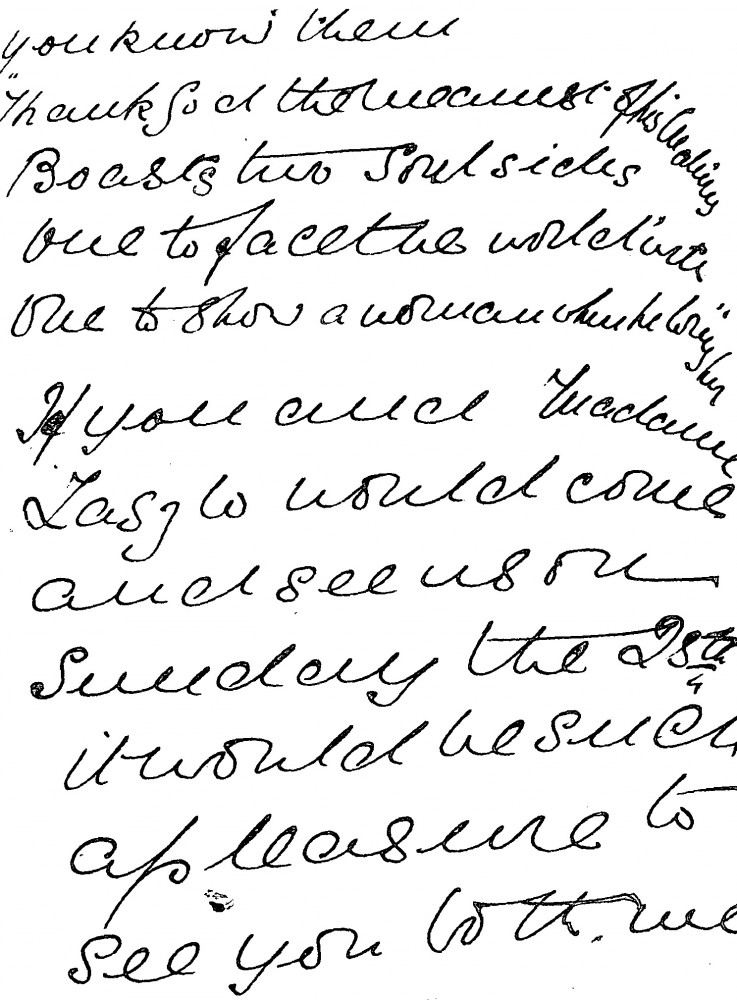 you know them
"Thank God the meanest of his Creatures
Boasts two Soul sides
One to face the world with
One to show a woman when he loves her"
If you and Madame
Laszlo would come
and see us on
Sunday the 28th
it would be such
a pleasure to
see you both. we